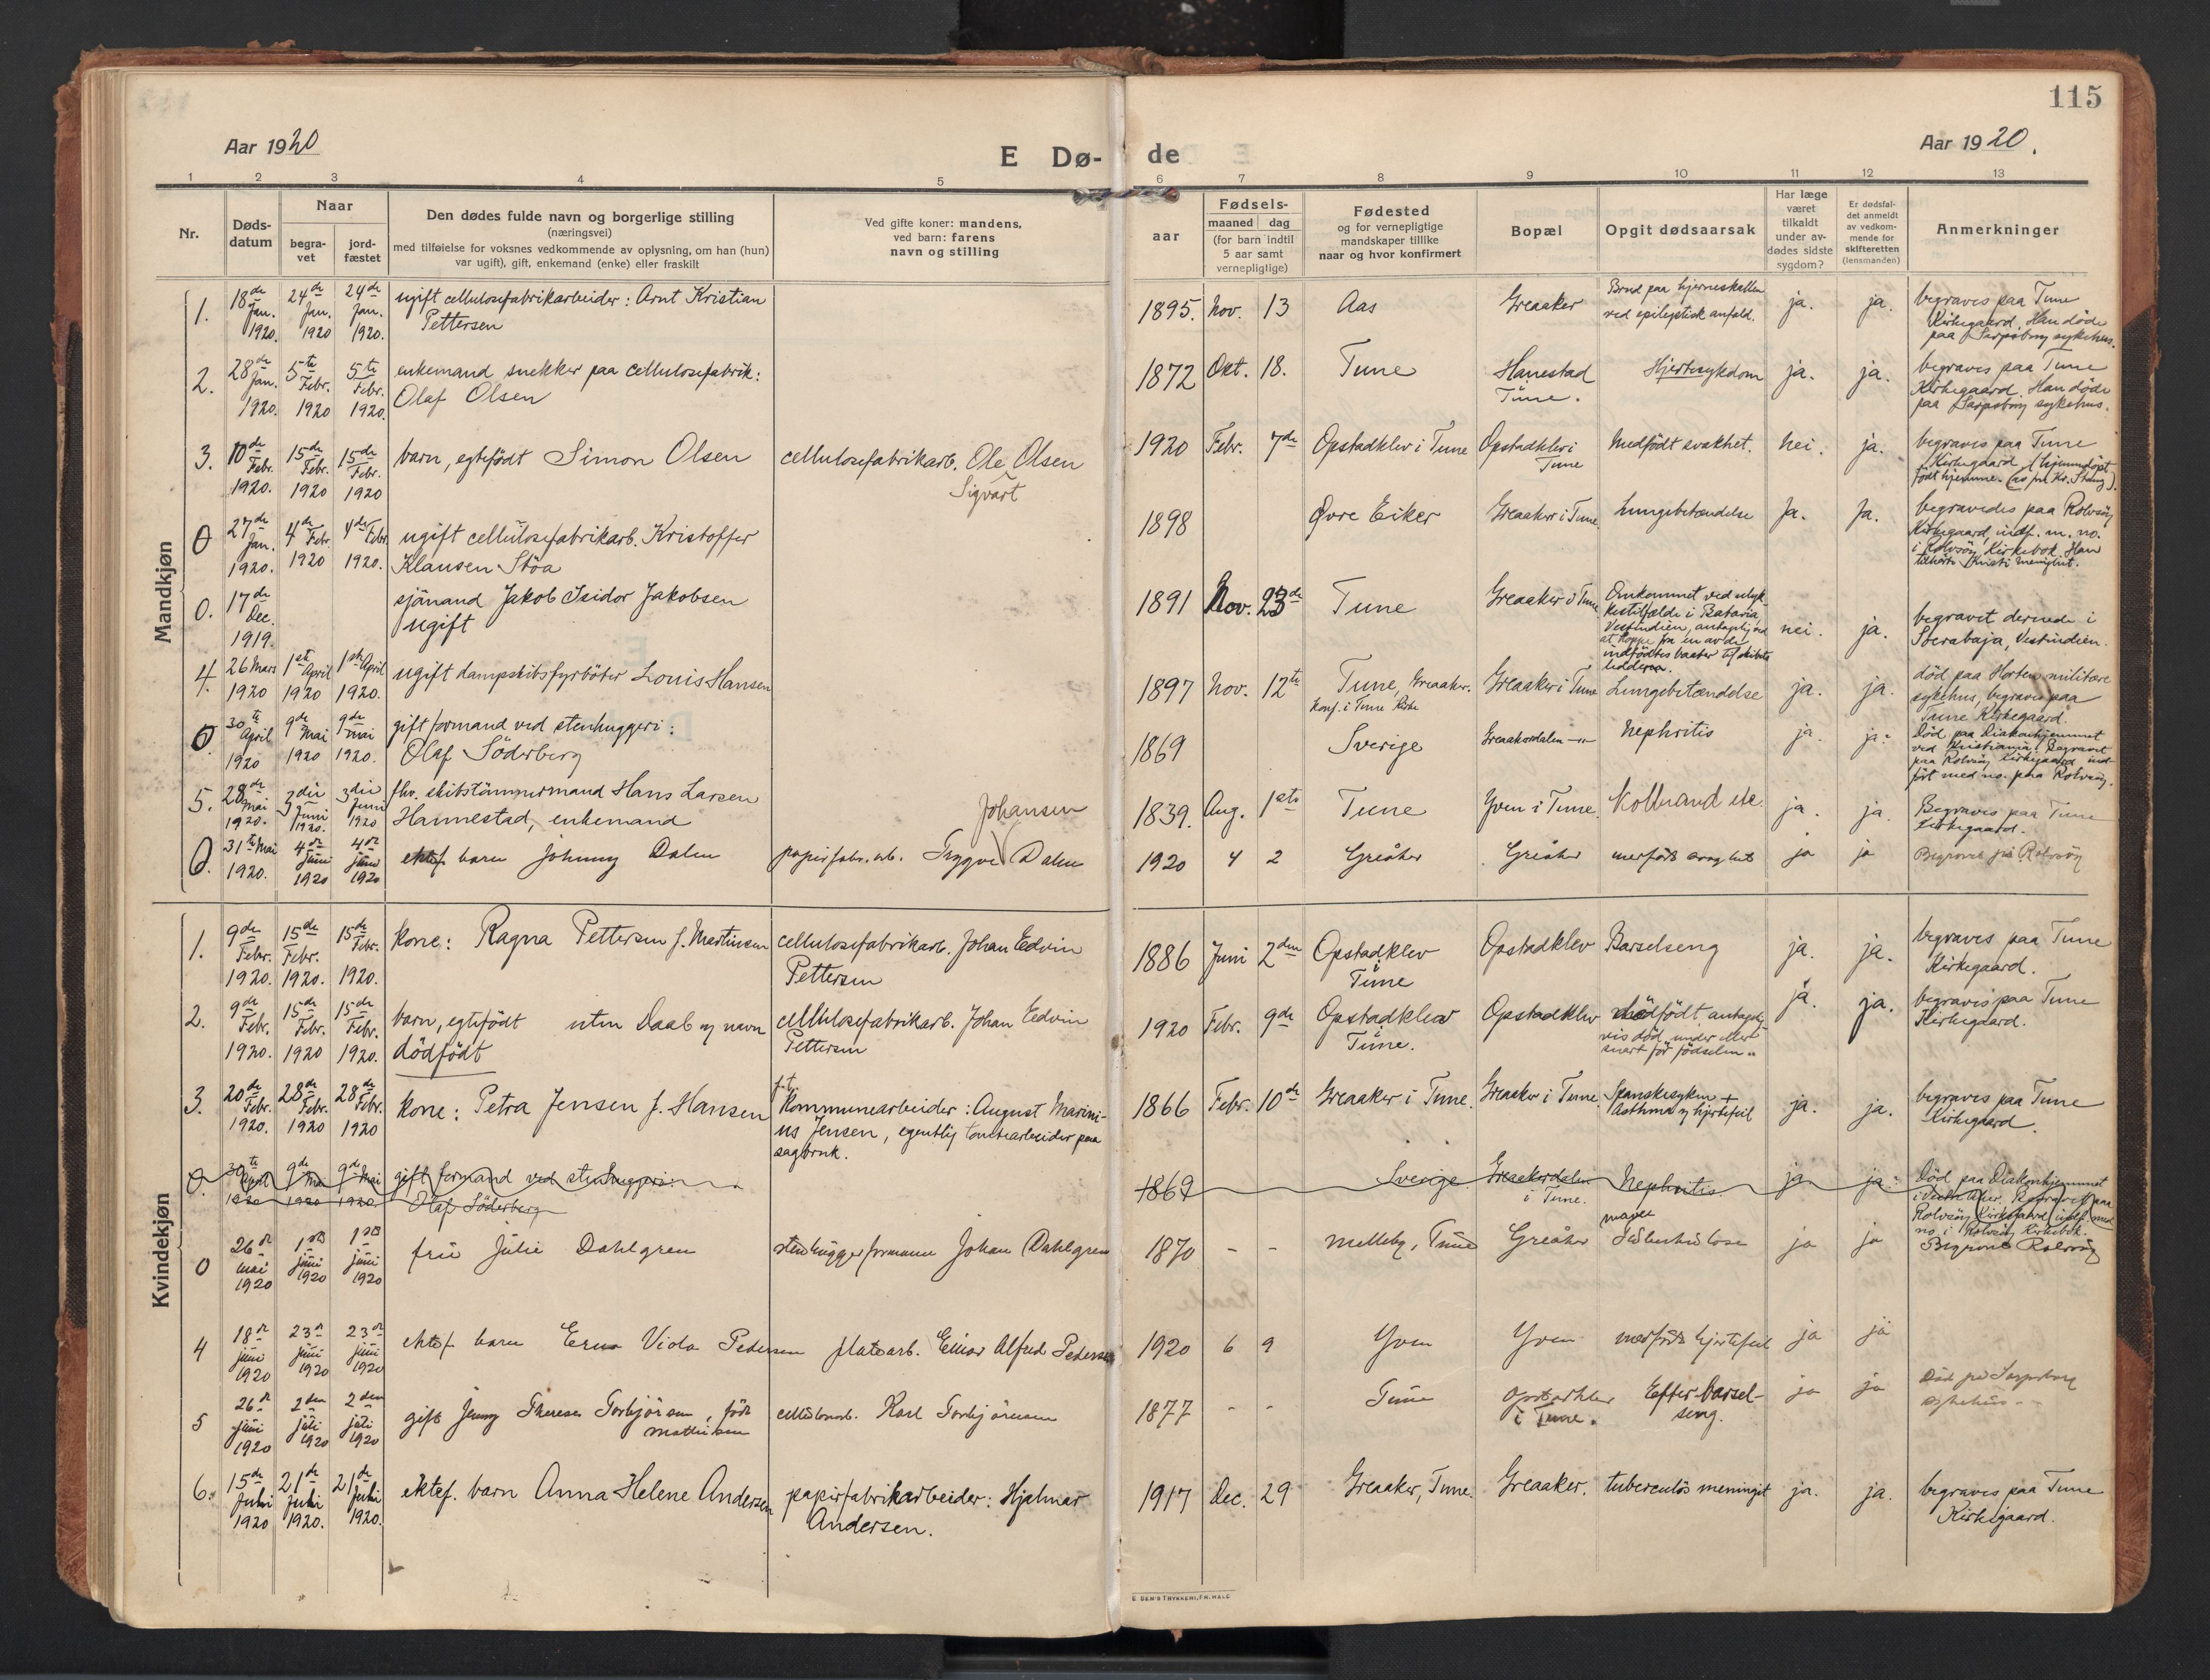 115
Aar 1920
E Dø-
de
Aar 1920.
1 2 3 4 5 6 7 8 9 10 11 12 13
Nr.
Døds-
datum
Naar
begra-
vet
jord-
fæstet
Den dødes fulde navn og borgerlige stilling
(næringsvei)
med tilføielse for voksnes vedkommende av oplysning, om han (hun)
var ugift), gift, enkemand (enke) eller fraskilt
Ved gifte koner: mandens,
ved barn: farens
navn og stilling
aar
Fødsels-
maaned dag
(for barn indtil
5 aar samt
vernepligtige)
Fødested
og for vernepligtige
mandskaper tillike
naar og hvor konfirmert
Bopæl
Opgit dødsaarsak
Har læge
været
tilkaldt
under av-
dødes sidste
sygdom?
Er dødsfal-
det anmeldt
av vedkom-
mende for
skifteretten
(lensmanden)
Anmerkninger
Mandkjøn
1.
18de
Jan.
1920.
24de
Jan.
1920
24de
Jan.
1920.
ugift cellulosefabrikarbeider: Arnt Kristian
Pettersen
1895. Nov. 13
Aas
Greaaker
Brud paa hjerneskallen
ved epileptisk anfald.
ja.
ja.
begraves paa Tune
Kirkegaard. Han döde
paa Sarpsborg sykehus.
2.
28de
Jan.
1920.
5te
Febr.
1920
5te
Febr.
1920.
enkemand snekker paa cellulosefabrik:
Olaf Olsen
1872 Okt. 18.
Tune
Hanestad
i
Tune.
Hjertesykdom
ja.
ja.
begraves paa Tune
Kirkegaard. Han döde
paa Sarpsborg sykehus.
3.
10de
Febr.
1920.
15de
Febr.
1920
15de
Febr.
1920
barn, egtefödt Simon Olsen
cellulosefabrikarb. Ole Olsen
Sigvart
1920 Febr. 7de
Opstadklev i Tune
Opstadklev i
Tune
Medfödt svakhet.
nei.
ja.
begraves paa Tune
Kirkegaard (hjemmedöpt
födt hjemme.
0
27de
Jan.
1920.
4de
Febr.
1920
4de Febr.
1920.
ugift cellulosefabrikarb. Kristoffer
Klausen Stöa
1898
Øvre Eiker
Greaaker i Tune.
Lungebetændelse
Ja.
Ja.
begravedes paa Rolvsöy
Kirkegaard, indf. m. no.
i Rolvsöy Kirkebok. Han
tilhörte Kristi menighet.
0.
17de
Dec.
1919.
sjömand Jakob Isidor Jakobsen
ugift
1891 Nov. 23de
Tune
Greaaker i Tune
Omkommet ved ulyk-
kestilfælde i Batavia,
Vestindien, antagelig ved
at hoppe fra en av de
indfödtes baater til skibets
nei.
ja.
begravet dernede i
Soerabaja, Vestindien.
4.
26 Mars
1920
1ste April
1920
1ste April
1920.
ugift dampskibsfyrböter Louis Hansen
1897 Nov. 12te
Tune, Greaaker.
Konf. i Tune Kirke
Greaaker i Tune
Lungebetændelse
ja.
ja.
död paa Horten militære
sykehus, begraves paa
Tune Kirkegaard.
0.
30te
April
1920
9de
Mai
1920
9de
mai
1920.
gift formand ved stenhuggeri:
Olaf Söderberg
1869
Sverige
Greaakerdalen
Nephritis
ja.
ja.
Död paa Diakonhjemmet
ved Kristiania. Begravet
paa Rolvsöy Kirkegaard ind-
fört med no. paa Rolvsöy.
5.
28de
Mai
1920.
3die
Juni
1920.
3die
Juni
1920
fhv. skibstömmermand Hans Larsen
Hannestad, enkemand
1839. Aug. 1ste
Tune
Yven i Tune.
Kolbrand etc.
ja.
ja.
Begraves paa Tune
Kirkegaard.
0.
31te Mai
1920.
4de
juni
1920
4de
juni
1920
ektef. barn Johnny Dalen
papirfabr. arb. Trygve Dalen
Johansen
1920 4 2
Greåker
Greåker
medfödt svaghet
ja
ja
Begravet på Rolvsöy
Kvindekjøn
1.
9de
Febr.
1920.
15de
Febr.
1920.
15de
Febr.
1920.
kone: Ragna Pettersen f. Martinsen
cellulosefabrikarb. Johan Edvin
Pettersen
1886 Juni 2den
Opstadklev
i
Tune
Opstadklev
Barselseng
ja.
ja.
begraves paa Tune
Kirkegaard.
2.
9de
Febr.
1920.
15de
Febr.
1920
15de
Febr.
1920.
barn, egtefödt uten Daab og navn
dödfödt
cellulosefabrikarb. Johan Edvin
Pettersen
1920 Febr. 9de
Opstadklev
i
Tune.
Opstadklev
dödfödt antagelig-
vis död under eller
snart för födselen.
ja.
ja.
begraves paa Tune
Kirkegaard.
3.
20de
Febr.
1920.
28de
Febr.
1920
28de
Febr.
1920
kone: Petra Jensen f. Hansen
f.t.
Kommunearbeider: August Marini-
us Jensen, egentlig tomtearbeider paa
sagbruk.
1866 Febr. 10de
Greaaker i Tune.
Greaaker i Tune
Spanskesyken +
Asthma og hjertefeil
ja.
ja.
begraves paa Tune
Kirkegaard.
0.
30te
April
1920
9de
Mai
1920
9de Mai
1920.
gift formand ved stenhuggeri:
Olaf Söderberg
1869
Sverige
Greaakerdalen
i Tune.
Nephritis.
ja
ja.
Död paa Diakonhjemmet
i Vestre Aker. Begravet paa
Rolvsöy Kirkegaard, indf. med
no. i Rolvsöy Kirkebok.
0
26de
mai
1920
1ste
juni
1920
1ste
juni
1920
fru Julie Dahlgren
stenhuggerformann Johan Dahlgren
1870 - -
Melleby, Tune
Greåker
mave
tuberkulose
ja
ja
Begravet Rolvsöy
4
18de
juni
1920
23de
juni
1920
23de
juni
1920
ektef. barn Erna Viola Pedersen
platearb. Einar Alfred Pedersen
1920 6 9
Yven
Yven
medfödt hjertefeil
ja
ja
5
26de
juni
1920
2den
juli
1920
2den
juli
1920
gift Jenny Therese Torbjörnsen, födt
Mathisen
cellulosearb. Karl Torbjörnsen
1877 - -
Tune
Opstadklev
i Tune.
Efter Barsel-
seng.
ja
ja
Död på Sarpsborg
sykehus
6.
15de
Juli
1920
21de
Juli
1920.
21de
Juli
1920.
ektef. barn Anna Helene Andersen
papirfabrikarbeider: Hjalmar
Andersen.
1917 Dec. 29
Greaaker, Tune.
Greaaker.
tuberculös meningit
ja.
ja.
begraves paa Tune
Kirkegaard.